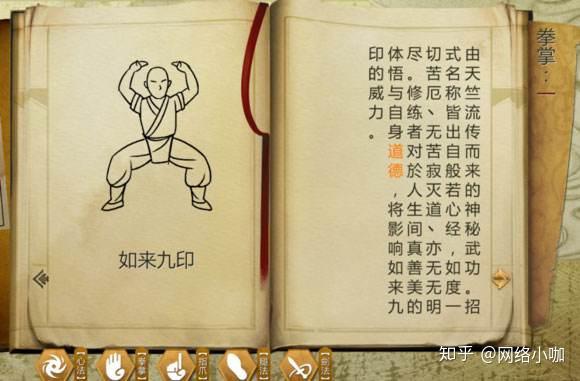 拳掌:一
由天竺流传而来的神秘武功。招
式名称皆出自般若心经,如度一
切苦厄、无苦寂灭道、亦无无明
尽。修练者对於人生间真善美的
体悟与自身道德,将影响如来九
印的威力。
如来九印
【心法】
【拳掌】
【指爪】
【腿法】
知乎 @网络小咖